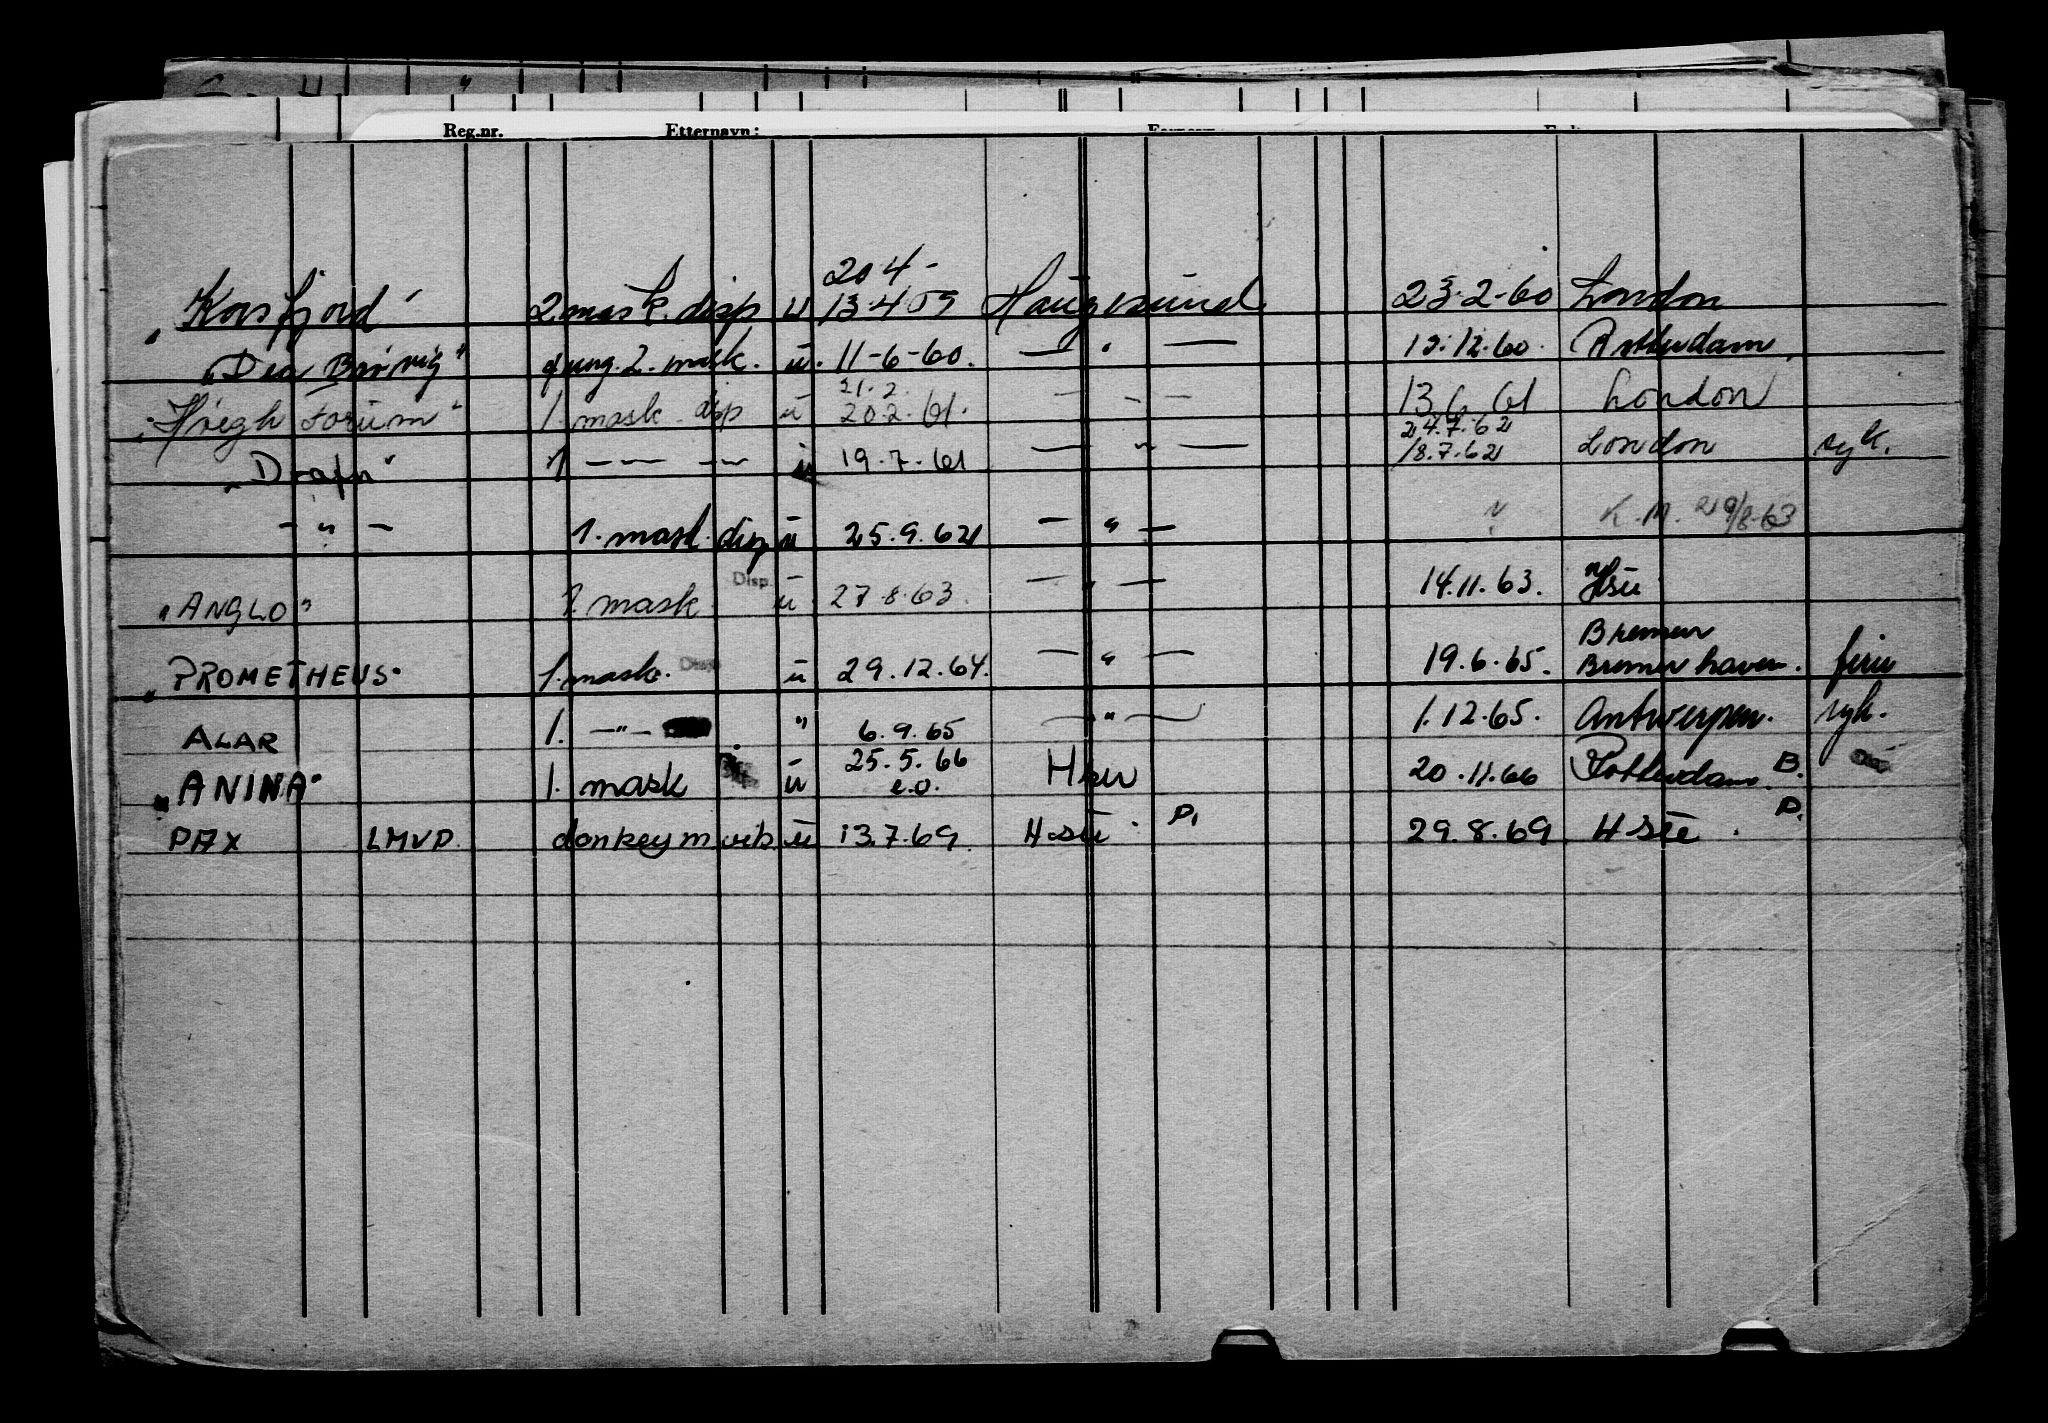 Reg.nr. Etternavn:
20 4-
"Korsfjord" 2. mask. disp u 13.4 59 Haugesund 23.2-60 London
"Dea Brøvig" fung. 2. mask. u. 11-6-60. — " — 12.12.60. Rotterdam
21.2.
"Høegh Forum" 1. mask. disp u 20.2.61. — " — 13.6.61 London
24.7.62
"Drafn" 1 — — — — u 19.7.61 — " — 18.7.62 London syk.
— " — 1. mask. disp u 25.9.62 — " — " K.M. 29/8-63
Disp.
"ANGLO" 1. mask u 27.8.63. — " — 14.11.63. Hsu
Bremen
"PROMETHEUS" 1. mask. Disp u 29.12.64. — " — 19.6.65. Bremerhaven. ferie
ALAR 1. — " — " 6.9.65 — " — 1.12.65. Antwerpen. syk.
25.5.66
"ANINA" 1. mask u e.o. Hsu 20.11.66 Rotterdam B.
PAX LMVP donkeym vik u 13.7.69. Hsu. P. 29.8.69 Hsu. P.